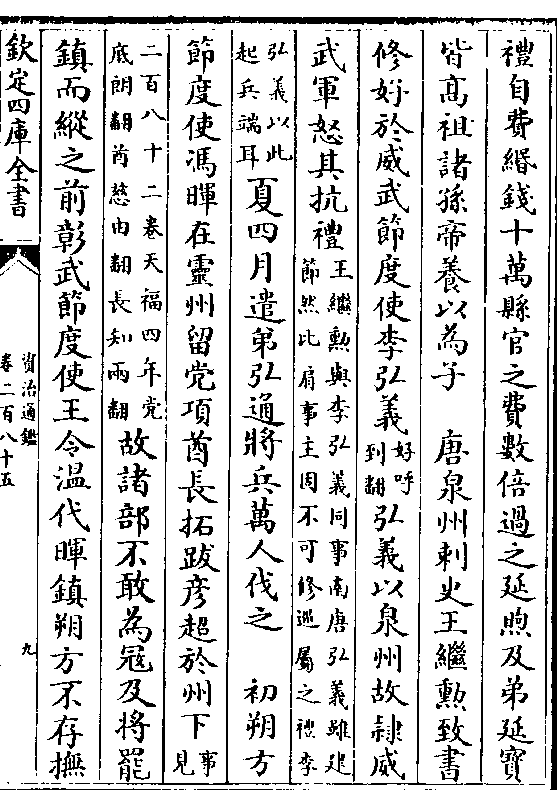 禮自費緡錢十萬縣官之費數倍過之延煦及弟延寶
皆高祖諸孫帝養以為子　唐泉州刺史王繼勲致書
修好於威武節度使李弘義好呼到翻弘義以泉州故隸威
武軍怒其抗禮王繼勲與李弘義同事南唐弘義雖建節然比肩事主固不可修巡屬之禮李
弘義以此起兵端耳夏四月遣弟弘通將兵萬人伐之　初朔方
節度使馮暉在靈州留党項酋長拓跋彦超於州下事見
二百八十二卷天福四年党底朗翻酋慈由翻長知兩翻故諸部不敢為冦及將罷
鎮而縱之前彰武節度使王令溫代暉鎮朔方不存撫
欽定四庫全書
資治通鑑
卷二百八十五
九